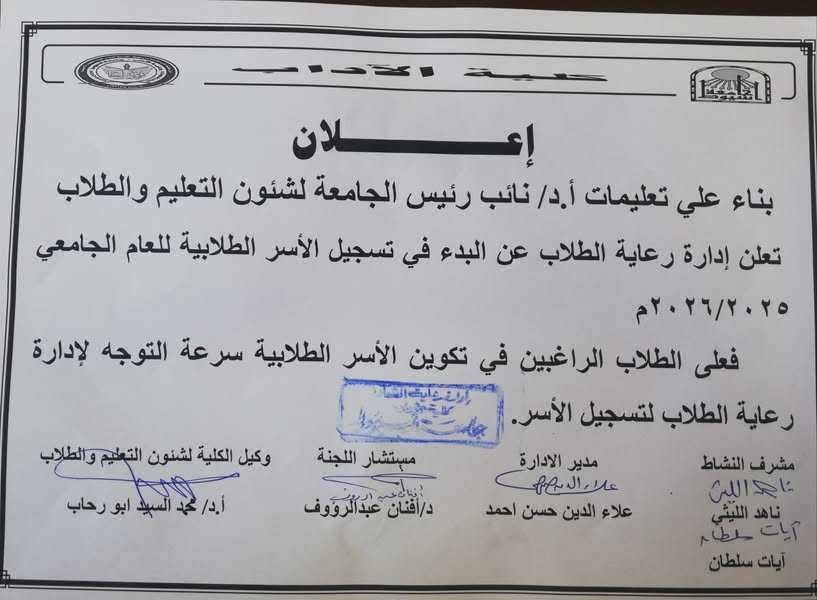 كلية الآداب
جامعة أسيوط
إعلان
بناء علي تعليمات أ.د/ نائب رئيس الجامعة لشئون التعليم والطلاب
تعلن إدارة رعاية الطلاب عن البدء في تسجيل الأسر الطلابية للعام الجامعي
٢٠٢٦/٢٠٢٥م
فعلى الطلاب الراغبين في تكوين الأسر الطلابية سرعة التوجه لإدارة
رعاية الطلاب لتسجيل الأسر.
مشرف النشاط
ناهد الليثي
ناهد الليثي
آيات سلطان
آيات سلطان
مدير الادارة
علاء الدين حسن احمد
مستشار اللجنة
د/أفنان عبدالرؤوف
وكيل الكلية لشئون التعليم والطلاب
أ.د/ محمد السيد ابو رحاب